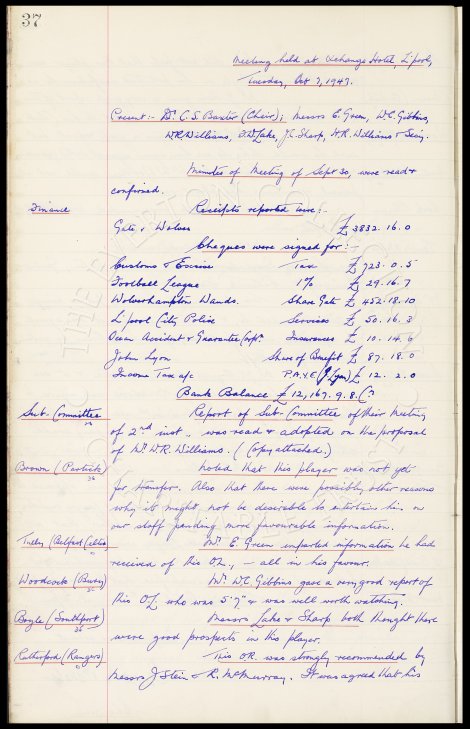 37
Meeting held at Exchange Hotel, L'pool,
Tuesday, Oct 7, 1947.
Present:- Dr. C.S. Baxter (Chair); Messrs E. Green, W.C. Gibbins,
W.R. Williams, J.C. Sharp, H.R. Williams & Secy.
Minutes of Meeting of Sept 30, were read &
confirmed.
Finance Receipts reported were:-
Gate v Wolves £3832. 16. 0
Cheques were signed for:-
Customs & Excise Tax £ 723. 0. 5
Football League 1% £ 29. 16. 7
Wolverhampton Wands. Share Gate £ 452. 18. 10
L'pool City Police Services £ 50. 16. 3
Ocean Accident & Guarantee Corpn. Insurances £ 10. 14. 6
John Lyon Share of Benefit £ 87. 18. 0
Income Tax a/c P.A.Y.E (J Lyon) £ 12. 2. 0
Bank Balance £ 12,167. 9. 8.
Sub. Committee Report of Sub. Committee of their Meeting
of 2nd inst., was read & adopted on the proposal
of Mr. W.R. Williams. (Copy attached.)
Brown (Partick) Noted that this player was not yet
for transfer. Also that there were possibly other reasons
why it might not be desirable to entertain him on
our staff pending more favourable information.
(Belfast Celtic) Mr. E. Green imparted information he had
received of this O.L., - all in his favour.
Woodcock (Bury) Mr. W.C. Gibbins gave a very good report of
this O.L who was 5'7" & was well worth watching.
Boyle (Southport) Messrs Lake & Sharp both thought there
were good prospects in this player.
Rutherford (Rangers) This O.R. was strongly recommended by
Messrs J Stein & R. McMurray. It was agreed that his